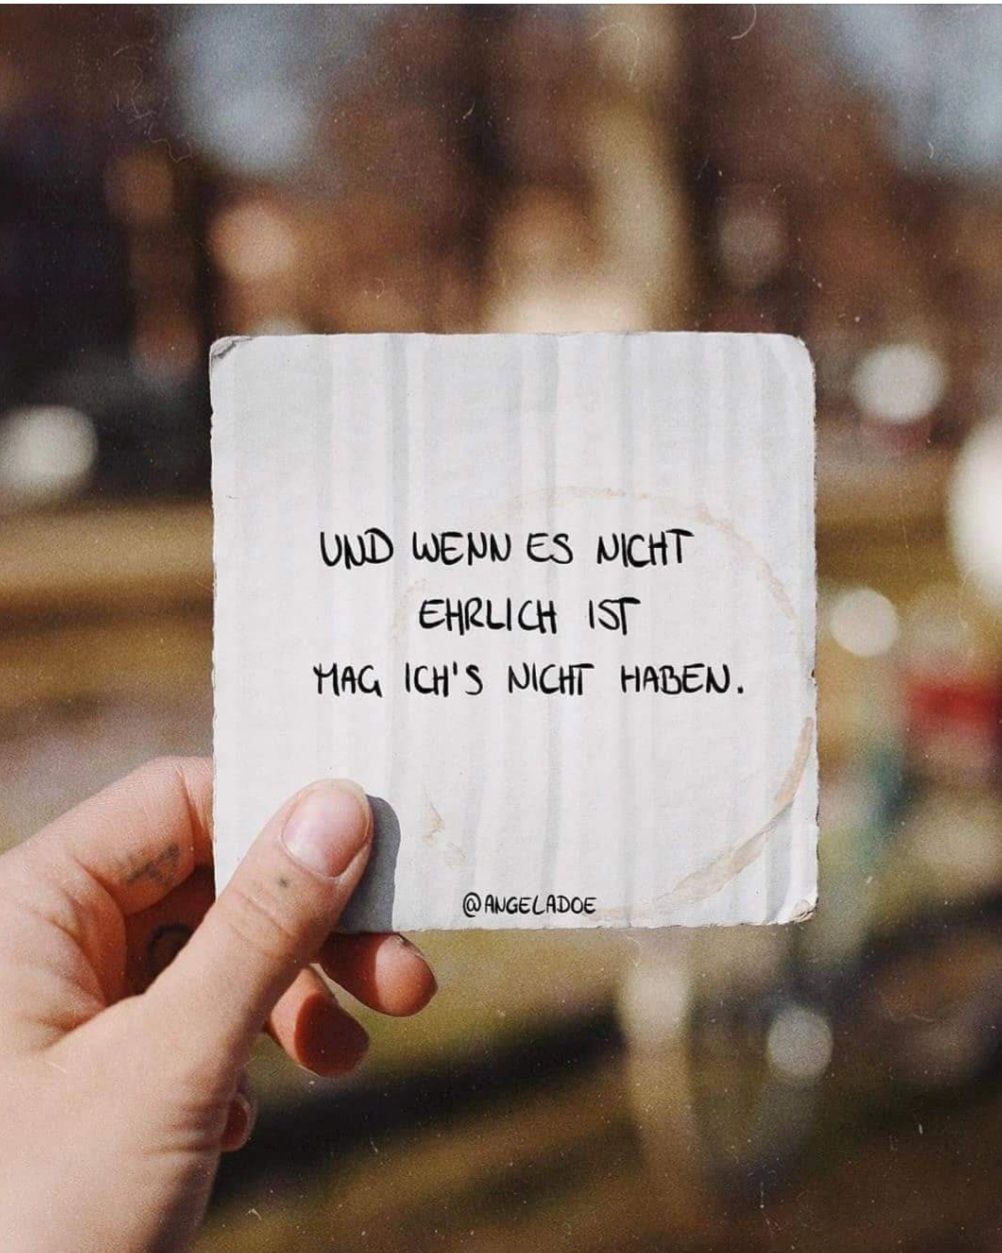 UND WENN ES NICHT
EHRLICH IST
MAG ICH'S NICHT HABEN.
@ANGELADOE